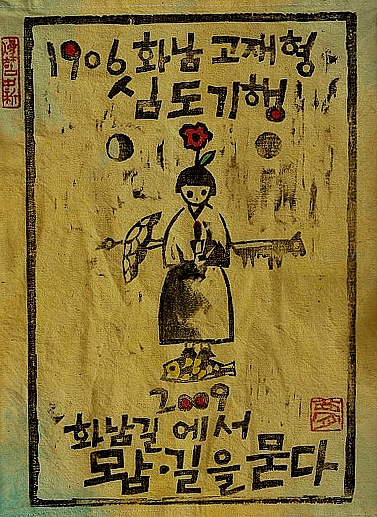 1906 화남 고재형
심도기행
2009
화남길에서
뫔·길을 묻다